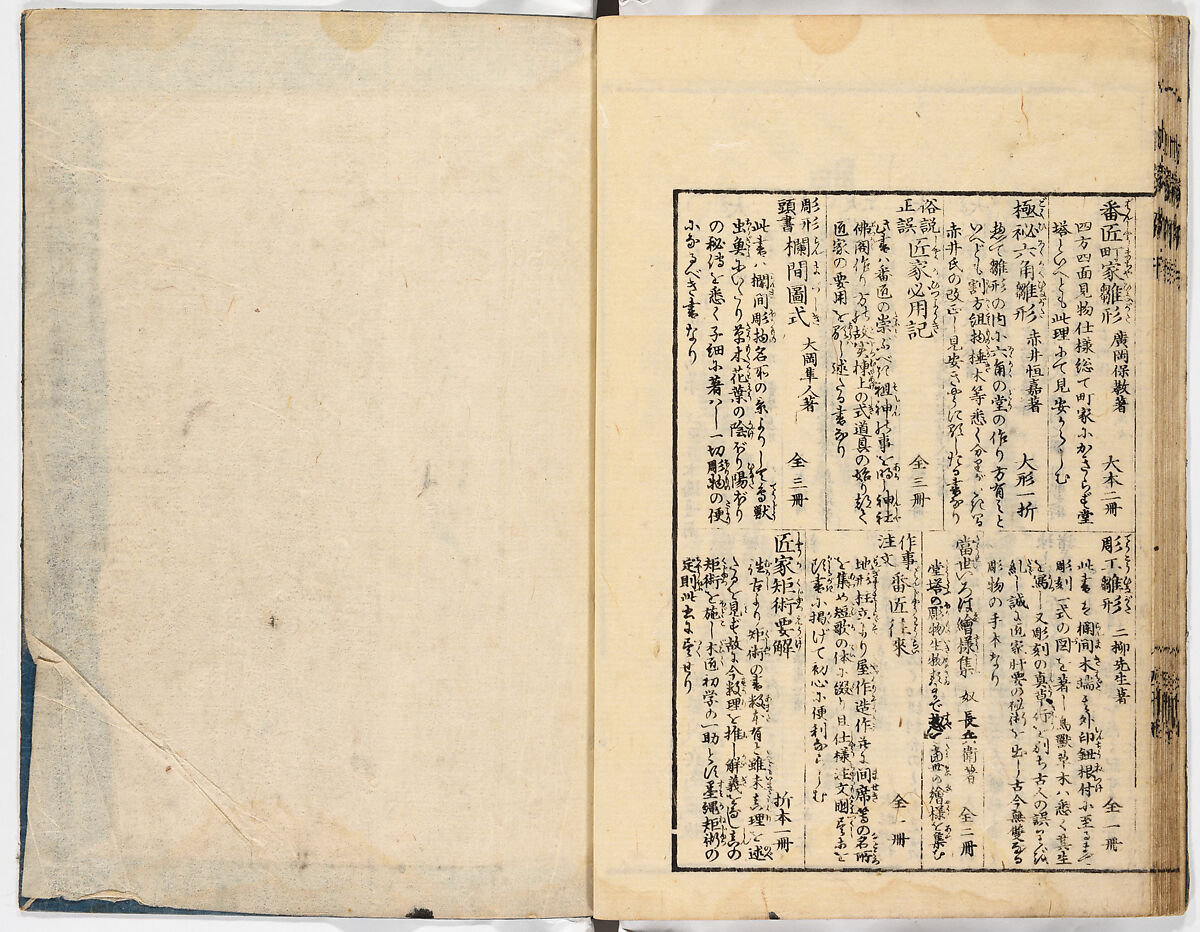 番匠町家雛形 廣岡保教著 大本二冊
四方四面見物仕様総て町家にかぎらず堂
塔といへども此理にて見安からしむ
極秘六角雛形 赤井恒嘉著 大形一折
惣て雛形の内に六角の堂の作り方有こと
いへども割方組物棰木等悉く分
赤井氏の改正し見安き
俗説正誤 匠家必用記 全三冊
此書ハ番匠の崇ぶべき祖神の事を明し神社
佛閣作り方故実棟上の式道具の始り
匠家の要用を記し述たる書なり
彫形頭書 欄間圖式 大岡隼人著 全三冊
此書ハ欄間彫物名所の条よりして鳥獣
虫奥にいたり草木花葉の陰ぼり陽ぼり
の秘傳を悉く子細に著ハし一切彫物の便
になるべき書なり
彫工雛形 二柳先生著 全一冊
此書は欄間木端其外印鈕根付に至るまで
彫刻一式の図を著し鳥獣草木ハ悉く其生
を写し又彫刻の真草行を別ち古人の誤り
糺し誠に匠家肝要の秘術を出し古今無双なる
彫物の手本なり
當世いろは繪様集 奴長兵衛著 全二冊
堂塔の彫物生物類まで 當世の繪様を集む
作事注文 番匠往來 全一冊
地形柱立より屋作造作 間席等の名所
を集め短歌の体に綴り且仕様注文
頭書に掲げて初心に便利ならしむ
匠家矩術要解 折本一冊
往古より矩術の書数多有と雖未真理を述
たるを見ず故に今数理を推し解義を為し真の
矩術を施し木匠初学の一助とす墨縄矩術の
定則此書に尽せり